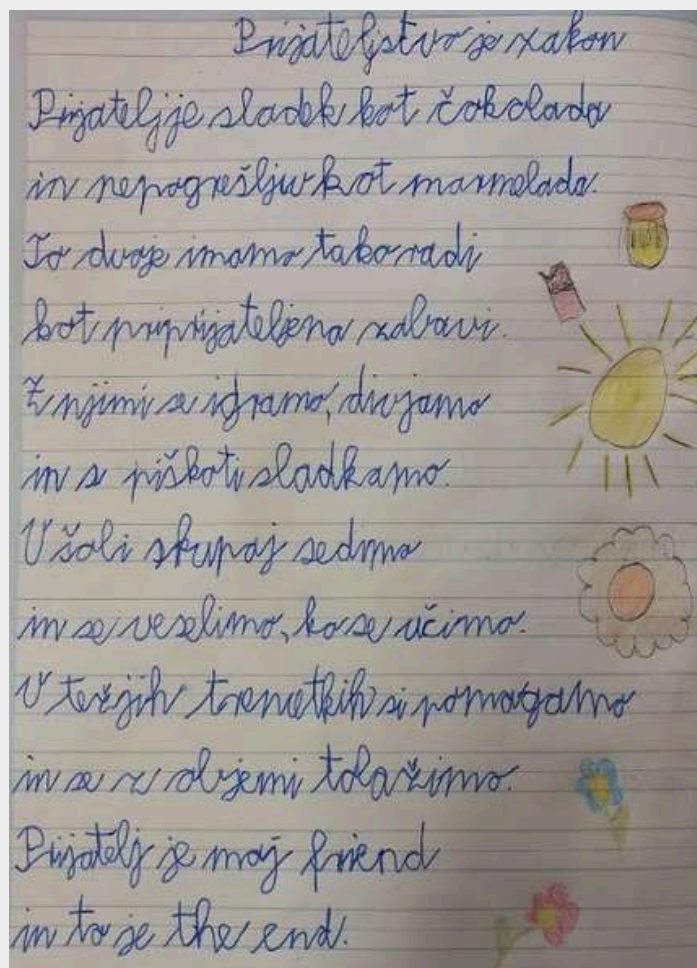 Prijateljstvo je zakon
Prijatelj je sladek kot čokolada
in nepogrešljiv kot marmelada.
To dvoje imamo tako radi
kot pri prijatelje na zabavi.
Z njimi se igramo, divjamo
in s piškoti sladkamo.
V šoli skupaj sedimo
in se veselimo, ko se učimo.
V težjih trenutkih si pomagamo
in se z objemi tolažimo.
Prijatelj je moj friend
in to je the end.